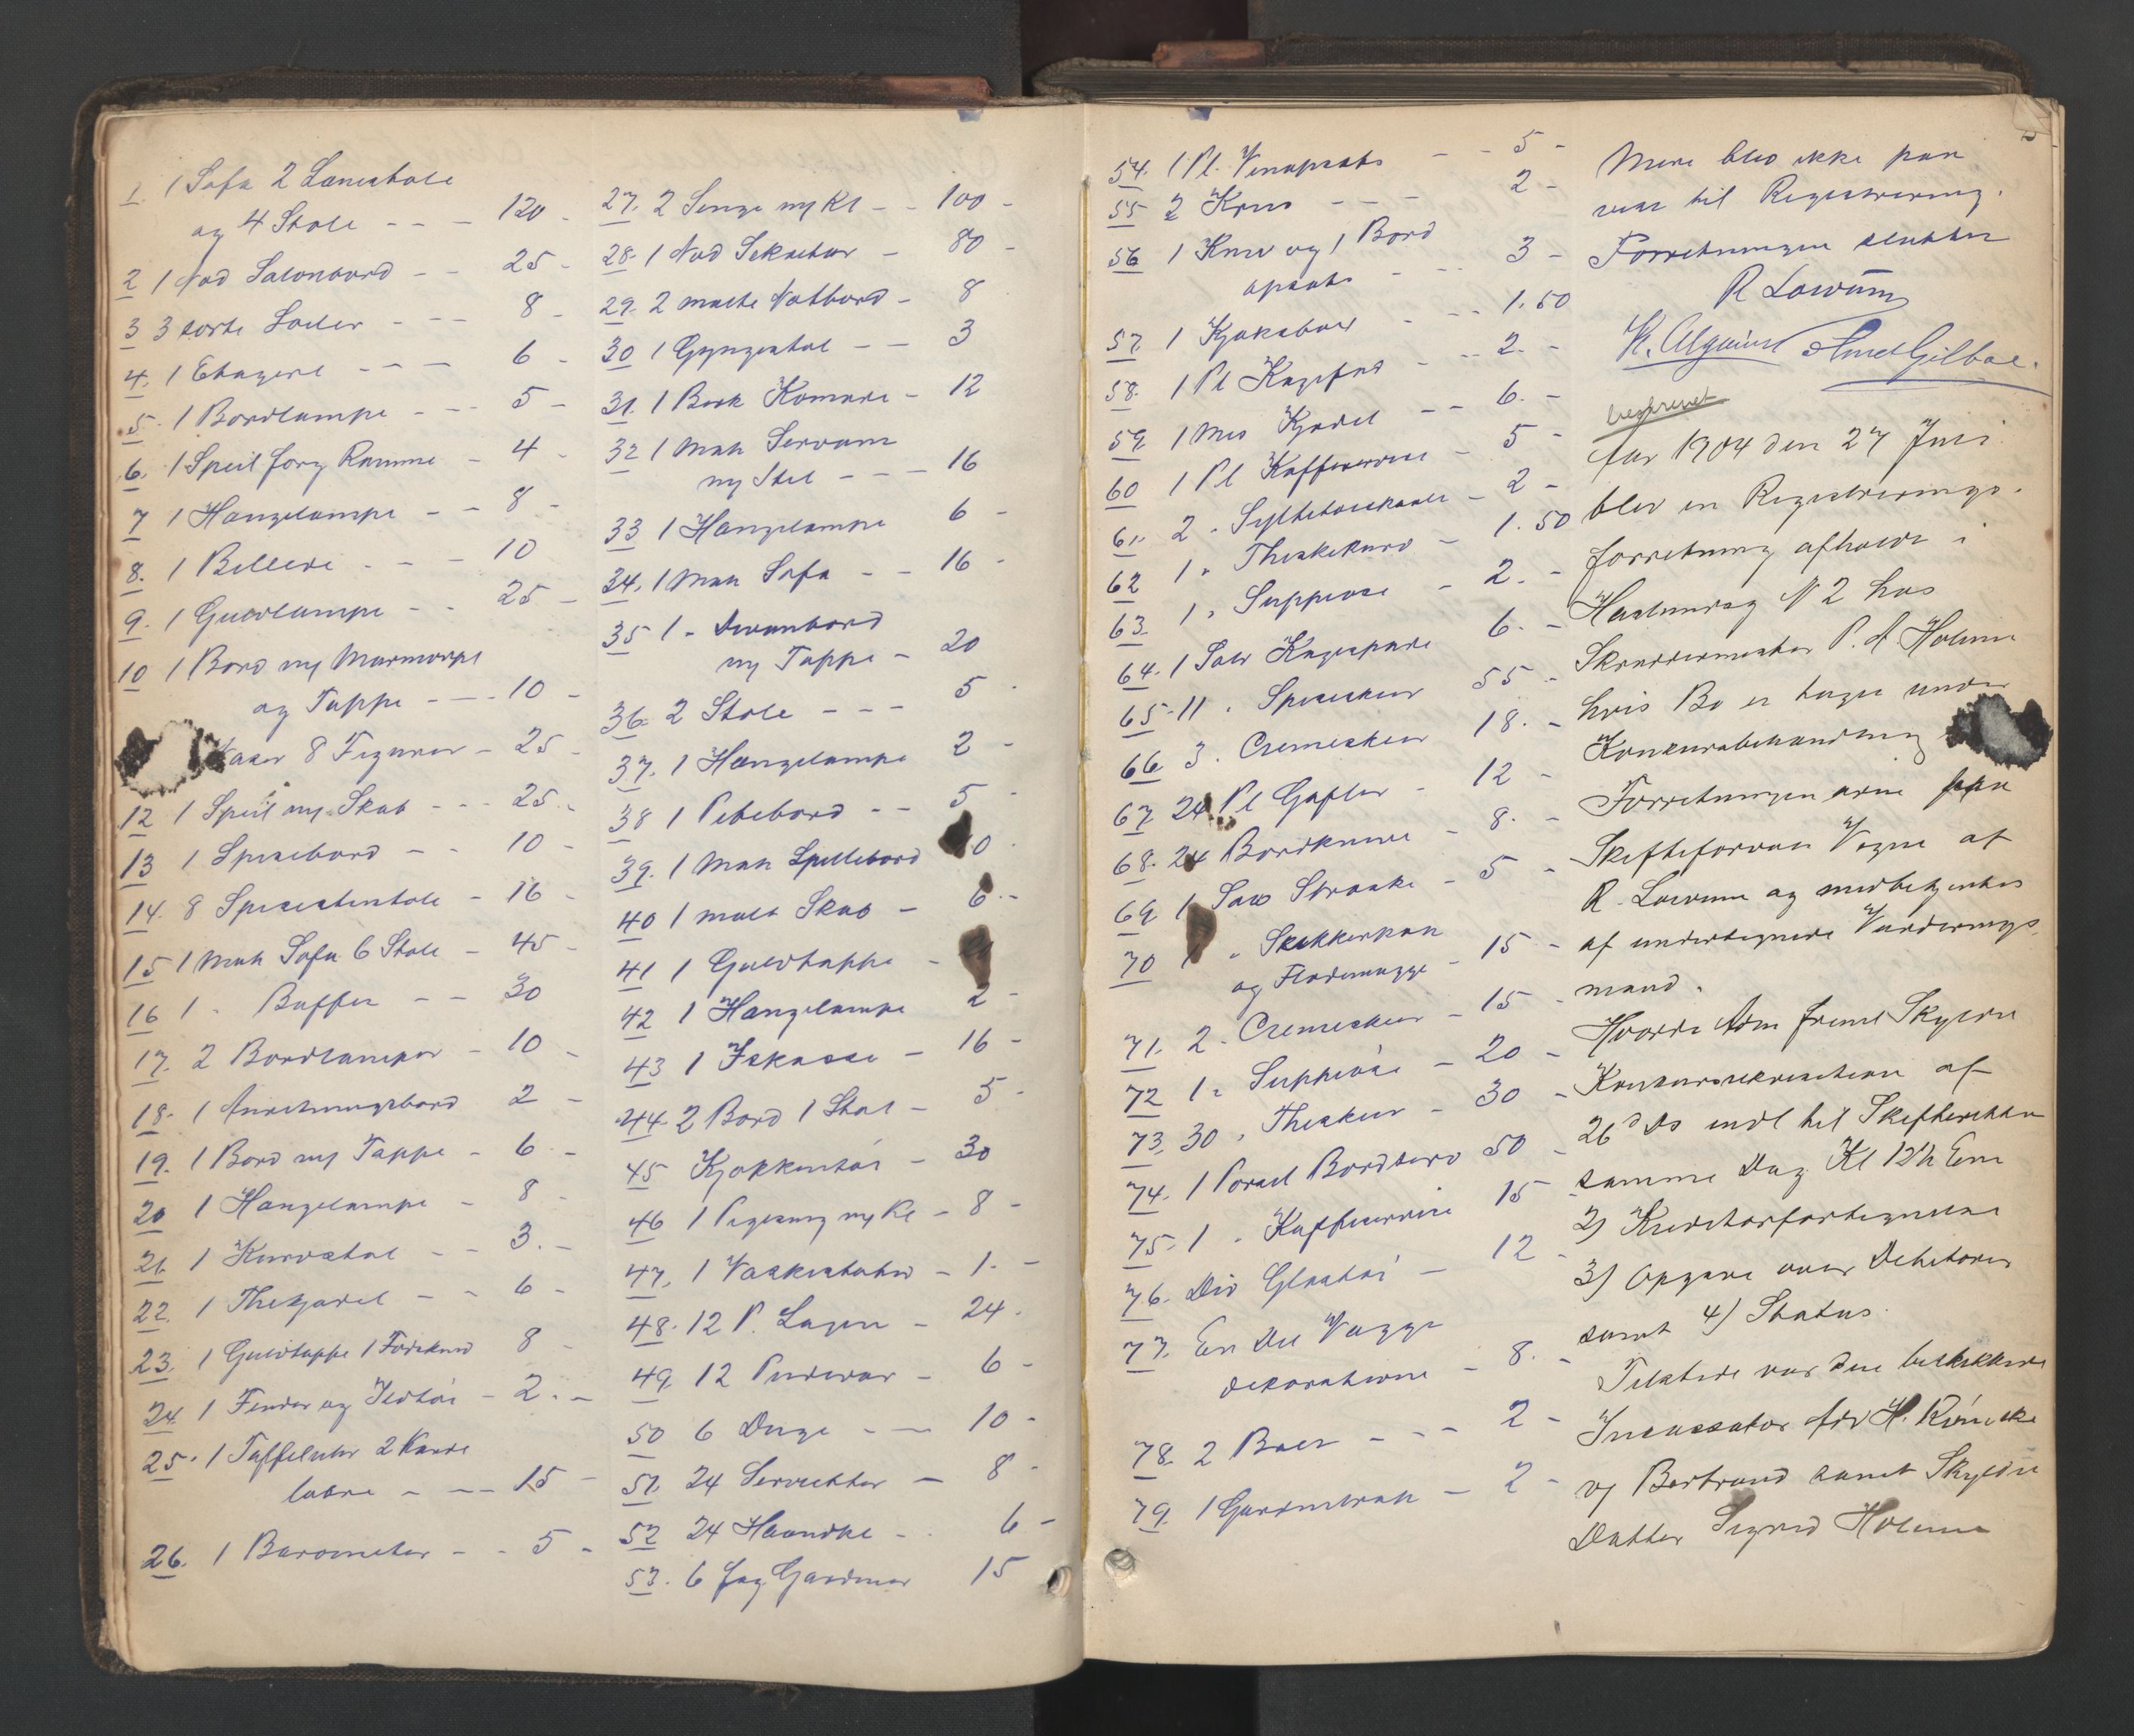 1. 1 Sofa 2 Lænestole
og 4 Stole - - - 120 -
2 1 Nød Salonbord - - 25 -
3 3 sorte Søiler - - - 8 -
4. 1 Etagere - - - 6 -
5. 1 Bordlampe - - - 5 -
6. 1 Speil forg Ramme - 4 -
7 1 Hængelampe - - 8 -
8. 1 Billede - - - 10
9. 1 Gulvlampe - - 25 -
10 1 Bord m/ Marmorpl
og Tæppe - - - 10 -
Vaser 8 Figurer - 25 -
12 1 Speil m/ Skab - - - 25 -
13 1 Spisebord - - 10 -
14. 8 Spisestustole - 16 -
15 1 Mah Sofa 6 Stole - 45 -
16 1 - Buffet - - 30
17. 2 Bordlamper - 10 -
18. 1 Anretningsbord 2 -
19. 1 Bord m/ Tæppe - 6 -
20 1 Hængelampe - 8 -
21. 1 Kurvstol - - 3. -
22. 1 Thekjedel - - 6 -
23. 1 Gulvtæppe 1 Fodskind 8 -
24. 1 Fender og Ildtøi - 2. -
25. 1 Taffeluhr 2 Kande
labre - - - 15 -
26. 1 Barometer - - 5 -
27. 2 Senge m/ Kl - - 100 -
28. 1 Nød Sekretær - 80 -
29. 2 malte Natbord - 8
30 1 Gyngestol - - 3
31. 1 Birk Komode - 12
32 1 Mah Servante
m/ Stel - - - 16
33 1 Hængelampe 6 -
34. 1 Mah Sofa - - 16 -
35 1 - Divanbord
m/ Tæppe - 20
36. 2 Stole - - - 5 -
37. 1 Hængelampe 2 -
38 1 Pibebord - - 5 -
39. 1 Mah Spillebord 0 -
40 1 malt Skab - 6 -
41 1 Gulvtæppe -
42 1 Hængelampe 2 -
43 1 Iskasse - 16 -
44. 2 Bord 1 Stol - 5 -
45 Kjøkkentøi - 30
46 1 Pigeseng m/ Kl - 8 -
47. 1 Vaskestativ - 1. -
48. 12 P. Lagen - 24 -
49. 12 Pudevar - 6 -
50 6 Duge - - - 10 -
51. 24 Servietter - 8 -
52 24 Haandkl - - 6 -
53. 6 Fag Gardiner 15
54. 1 Pl. Vinopsats - - 5 -
55 2 Krus - - - 2 -
56 1 Kniv og 1 Bord
opsats - - - 3 -
57. 1 Kjøkebord - - - 1.50
58. 1 Pl Kagefad - - - 2. -
59. 1 Mes Kjedel - - 6. -
60 1 Pl Kaffeservice - 5 -
61. 2 - Syltetøiskaale - 2 -
62 1 - Theskekurv - 1.50
63. 1 - Suppeøse - 2. -
64. 1 Sølv Kagespade 6. -
65. 11 - Spiseskeer 55 -
66 3 - Cremeskeer 18. -
67. 24 Pl Gafler - 12 -
68. 24 Bordknive - 8. -
69 1 Sølv Strøske - 5 -
70 1 - Sukkerskaal
og Flødemugge - 15 -
71. 2 - Cremeskeer - 15 -
72 1 - Suppeøse - 20 -
73. 30 - Theskeer - 30 -
74. 1 Porcel Bordserv 50 -
75. 1 - Kaffeservice 15 -
76. Div Glastøi - 12 -
77. En Del Vægge
dekorationer - 8. -
78. 2 Baller - - - 2 -
79. 1 Gardintræk - 2 -
Mere blev ikke paa
vist til Registrering.
Forretningen sluttet
R Løwum
beskrevet
Aar 1904 den 27 Juni
blev en Registrerings-
forretning afholdt i
N 2 hos
Skræddermester P. A Holme
hvis Bo er taget under
Konkursbehandling
Forretningen
Skifteforvalt Vegne af
R. Løwum og medbetjentes
af undertegnede Vurderings-
mænd.
Hvorda Adm freml Skyldn
Konkursrekvisition af
26 ds indl til Skifteretten
samme Dag Kl 12½ Em
2) Kreditorfortegnelse
3) Opgave over Debitorer
samt 4) Status.
Tilstede var den beskikkede
Incassator
v/ Bertrand samt Skyldn
Datter Sigrid Holme